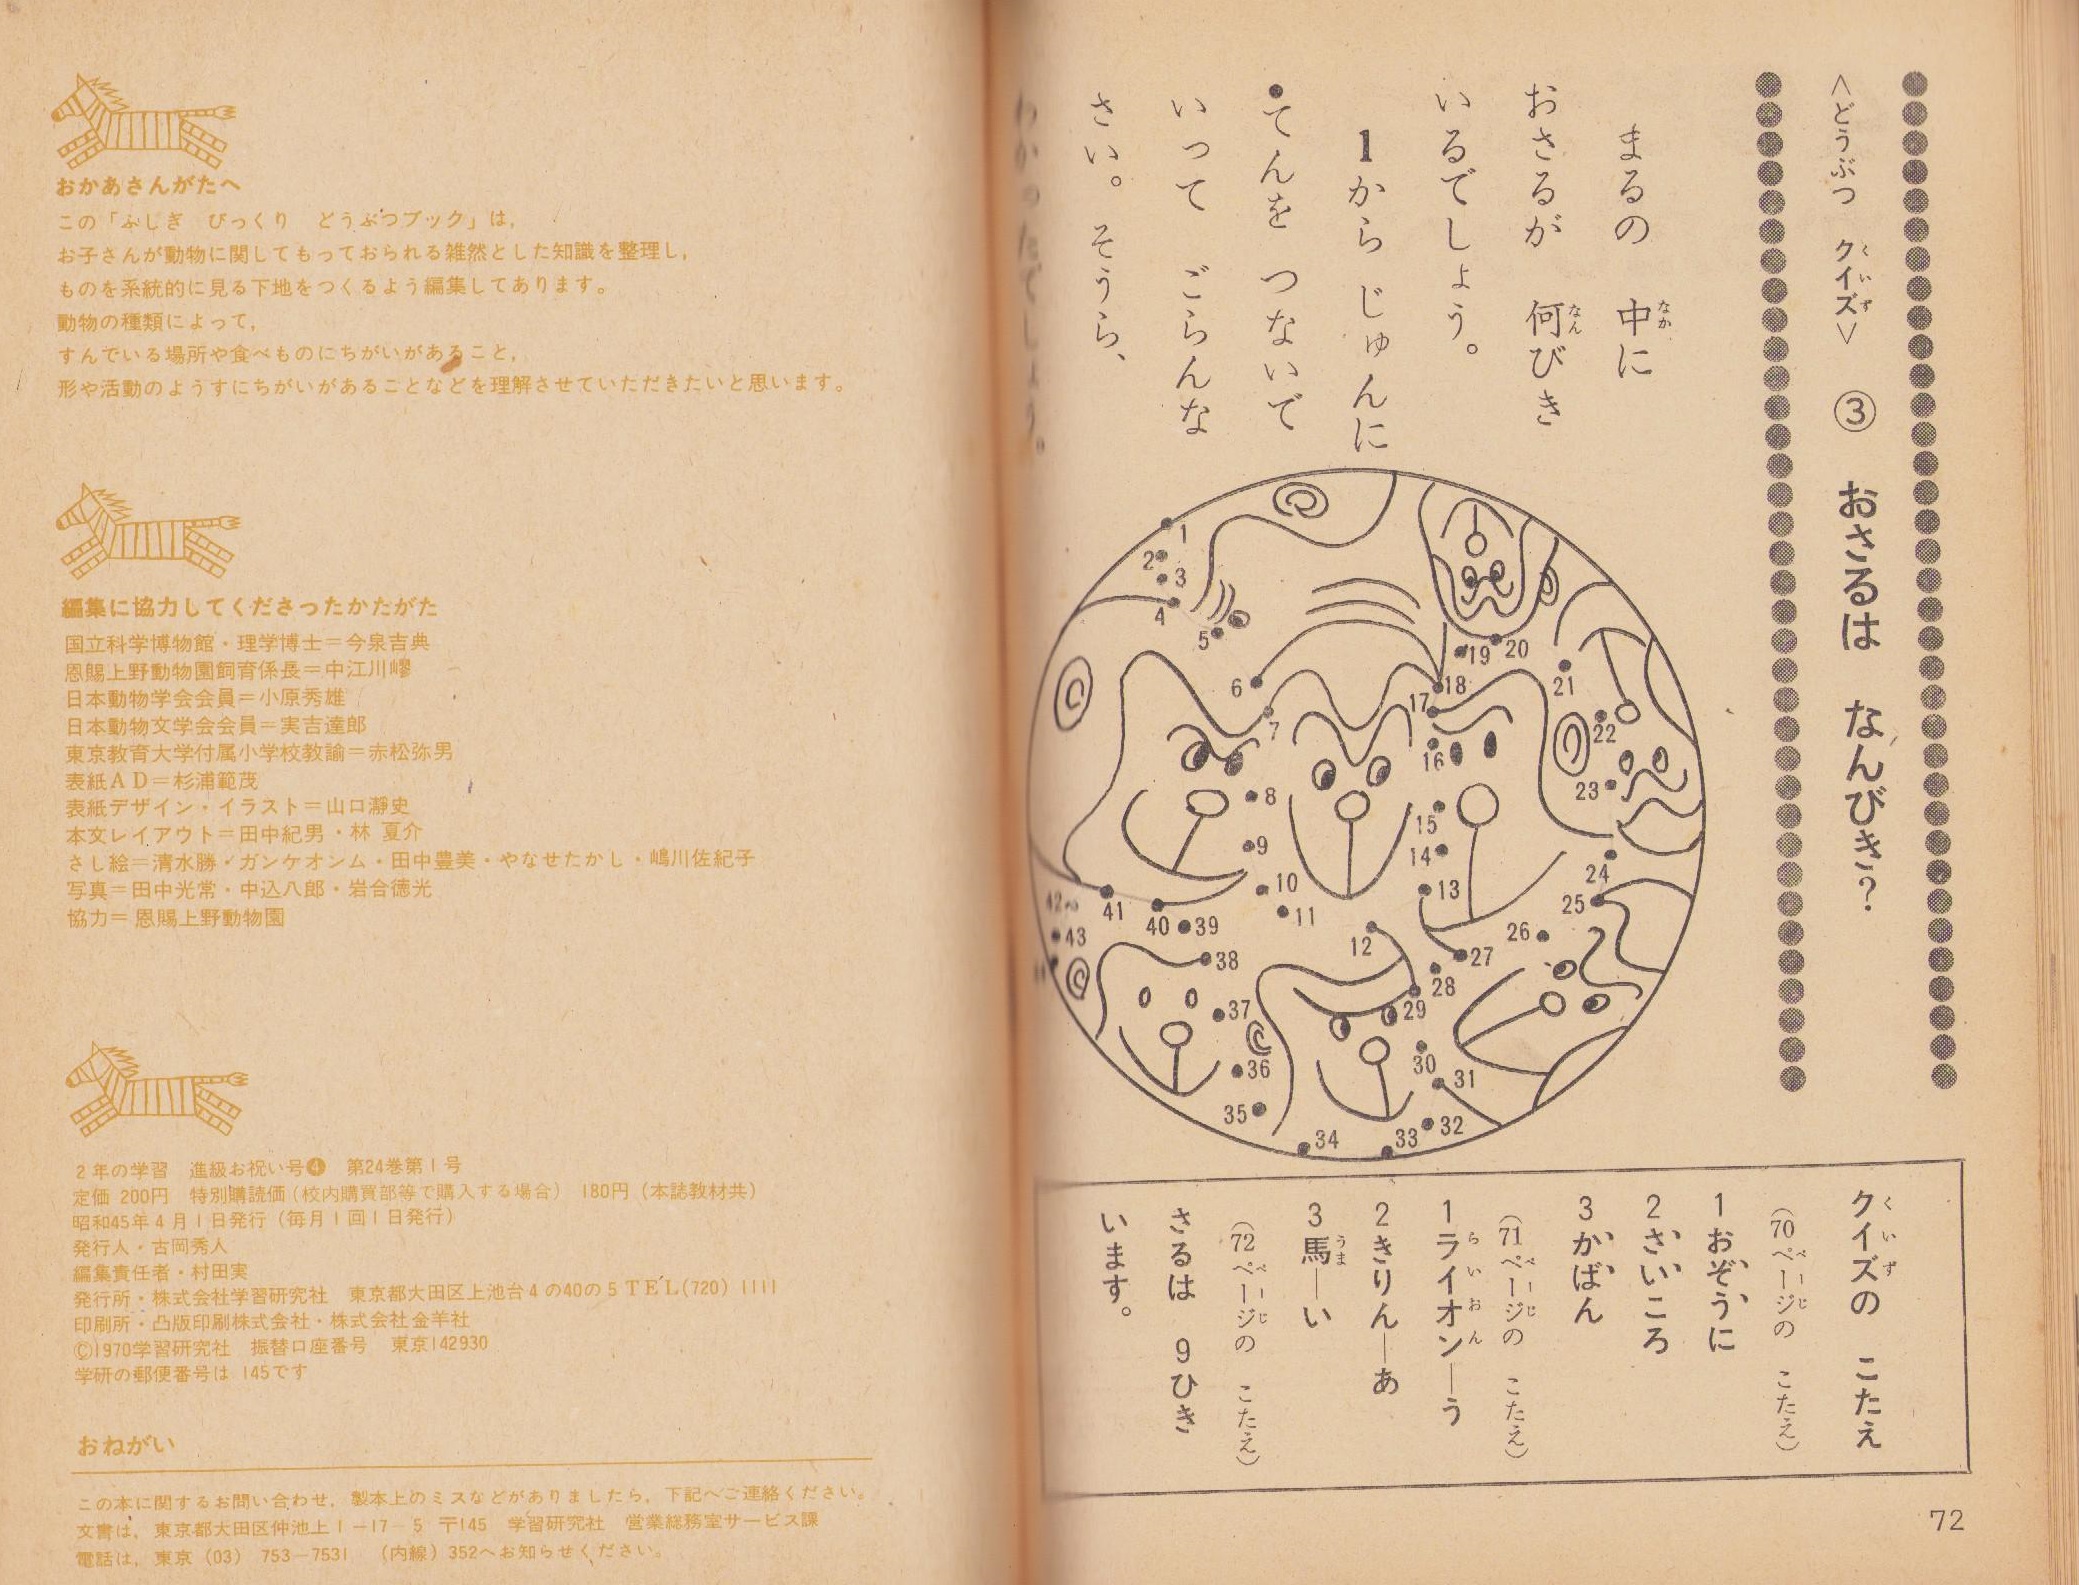 おかあさんがたへ
この「ふしぎ　びっくり　どうぶつブック」は，
お子さんが動物に関してもっておられる雑然とした知識を整理し，
ものを系統的に見る下地をつくるよう編集してあります。
動物の種類によって，
すんでいる場所や食べものにちがいがあること，
形や活動のようすにちがいがあることなどを理解させていただきたいと思います。
編集に協力してくださったかたがた
国立科学博物館・理学博士＝今泉吉典
恩賜上野動物園飼育係長＝中江川
日本動物学会会員＝小原秀雄
日本動物文学会会員＝実吉達郎
東京教育大学付属小学校教諭＝赤松弥男
表紙ＡＤ＝杉浦範茂
表紙デザイン・イラスト＝山口瀞史
本文レイアウト＝田中紀男・林 夏介
さし絵＝清水勝・ガンケオンム・田中豊美・やなせたかし・嶋川佐紀子
写真＝田中光常・中込八郎・岩合徳光
協力＝恩賜上野動物園
2年の学習　進級お祝い号❹　第24巻第1号
定価 200円　特別購読価（校内購買部等で購入する場合）　180円（本誌教材共）
昭和45年4月1日発行（毎月1回1日発行）
発行人・古岡秀人
編集責任者・村田実
発行所・株式会社学習研究社　東京都大田区上池台4の40の5 TEL(720) 1111
印刷所・凸版印刷株式会社・株式会社金羊社
©1970学習研究社　振替口座番号　東京142930
学研の郵便番号は 145です
おねがい
この本に関するお問い合わせ，製本上のミスなどがありましたら，下記へご連絡ください。
文書は，東京都大田区仲池上1－17－5 〒145　学習研究社　営業総務室サービス課
電話は，東京（03）753－7531　（内線）352へお知らせください。
＜どうぶつ　クイズ＞　③　おさるは　なんびき？
くいず
まるの　中に
なか
おさるが　何びき
なん
いるでしょう。
1から じゅんに
●てんを　つないで
いって　ごらんな
さい。そうら、
わかったでしょう。
1
2
3
4
5
6
7
8
9
10
11
12
13
14
15
16
17
18
19
20
21
22
23
24
25
26
27
28
29
30
31
32
33
34
35
36
37
38
39
40
41
42
43
クイズの　こたえ
くいず
（70ページの　こたえ）
ぺーじ
1おぞうに
2さいころ
3かばん
（71ページの　こたえ）
ぺーじ
1ライオン―う
らいおん
2きりん―あ
3馬―い
うま
（72ページの　こたえ）
ぺーじ
さるは　9ひき
います。
72